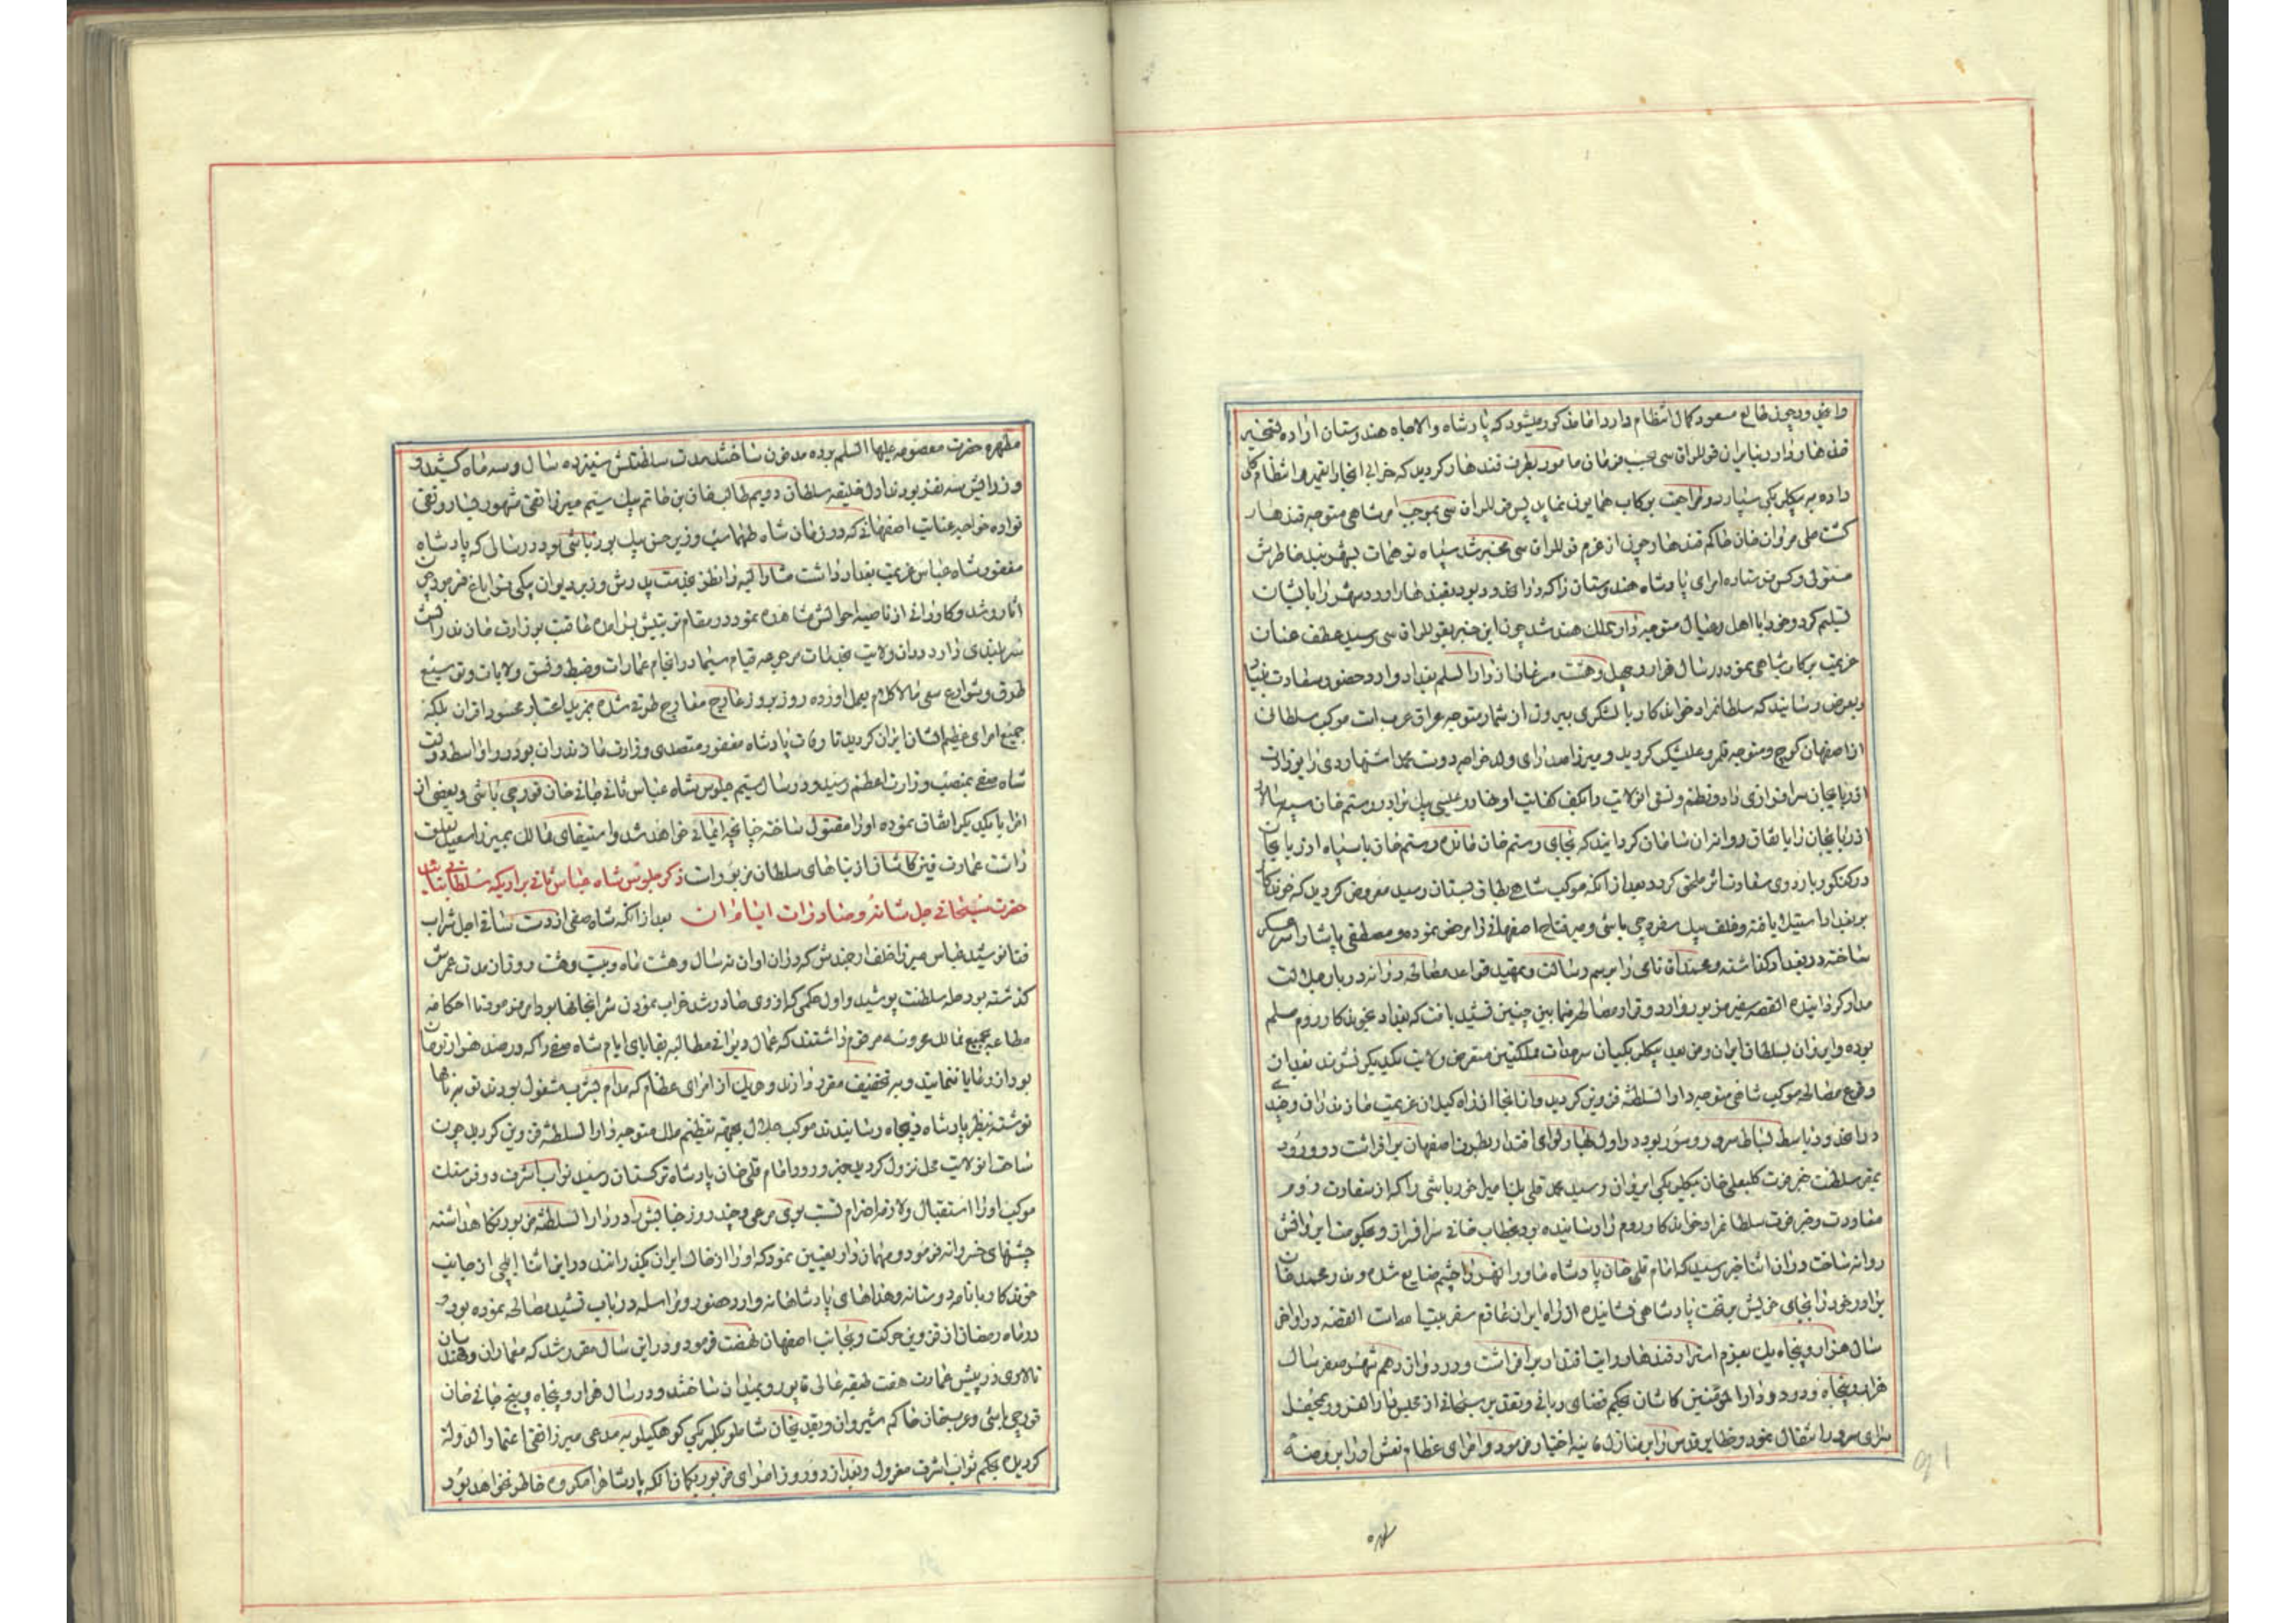 واعلی و چون طالع مسعود کمال انتظام دارد اما مذکور میشود که پادشاه والاجاه هندوستان اراده تسخیر
قندهار دارد بنابران قوللراقاسی حسب فرمان مامور بطرف قندهار کردید که خرابی انجارا تعمیر و انتظام کلی
داده به بیکلربیکی سپارد و مراجعت برکاب همایون نماید پس قوللراقاسی بموجب امر شاهی متوجه قندهار
کشت علی مردان خان حاکم قندهار چون از عزم قوللراقاسی مخبر شد سپاه توهمات بیهده بر خاطرش
مستولی و کس فرستاده امرای پادشاه هندوستان را که دران حدود بودند بقندهار اورد و شهر را بایشان
تسلیم کرد و خود با اهل و عیال متوجه دارالملک هند شد چون این خبر بقوللراقاسی رسید عطف عنان
عزیمت برکاب شاهی نمود در سال هزار و چهل و هشت مرغافا دارالسلم بغداد وارد حضور سعادت بنیاد
و بعرض رسانید که سلطانمراد خواندکار با لشکری بیرون از شمار متوجه عراق عرب است موکب سلطان
از اصفهان کوچ و متوجه قلمرو علیشکر کردید و میرزا صدرای ولد خواجه دوست محمد اشتهاردی را بوزارت
اذربایجان سرافرازی داد و نظم و نسق انولایت را بکف کفایت او نهاد و عیسی بیک برادر رستم خان سپه سالار
اذربایجان را باتفاق روانه ان سامان کردانید که بجای رستم خان مانده رستم خان با سپاه اذربایجان
در کنکور باردوی سعادت اثر ملحق کردد بعد از انکه موکب شاهی بطاق بستان رسید معروض کردید که خوندکار
بر بغداد استیلا یافته و خلف بیک سفره چی باشی و میر فتاح اصفهانی را مرخص نموده و مصطفی پاشا را سرعسکر
ساخته در بغداد کذاشته و محمد اقا نامی را برسم رسالت و تمهید قواعد مصالحه روانه دربار جلالت
مدار کردانیده القصه سفیر مزبور وارد و قرار مصالحه فیمابین چنین تشیید یافت که بغداد بخوندکار روم مسلم
بوده و ایروان بسلطان ایران و من بعد بیکلربیکیان سرحدات مملکتین متعرض ولایت یکدیکر نشوند بعد از
وقوع مصالحه موکب شاهی متوجه دارالسلطنه قزوین کردید و از انجا از راه کیلان عزیمت مازندران و چندی
دران حدود باسط بساط سرور و سور بود در اول بهار لوای اقتدار بطرف اصفهان برافراشت در ورود
بمقر سلطنت خبر فوت کلبعلی خان بیکلربیکی ایروان رسید محمد قلی بیک امیل خورباشی را که از سفارت روم
معاودت و خبر فوت سلطانمراد خواندکار روم را رسانیده بود بخطاب خانی سرافراز و بحکومت ایروانش
روانه ساخت دران اثنا خبر رسید که امام قلی خان پادشاه ماوراالنهر را چشم ضایع شده و ندر محمد خان
برادر خود را بجای خویش بتخت پادشاهی نشانیده از راه ایران عازم سفر بیت الله است القصه در اواخر
سال هزار و پنجاه یک بعزم استرداد قندهار رایت اقتدار برافراشت و در دوازدهم شهر صفر سال
هزار و پنجاه و دو در دارالمومنین کاشان بحکم قضای ربانی و تقدیر سبحانی از مجلس دارالغرور بمحفل
سرای سرور انتقال نمود و حظایر قدس را بر منازل فانیه اختیار فرمود و امرای عظام نعش او را بروضه
مطهره حضرت معصومه علیها السلم برده مدفون ساختند مدت سلطنتش سیزده سال و سه ماه کشید و
وزرائیش سه نفر بودند اول خلیفه سلطان دویم طالب خان بن حاتم بیک سیم میرزا تقی مشهور بسارو تقی
نواده خواجه عنایت اصفهانی که در زمان شاه طهماسب وزیر حسن بیک یوزباشی بود در سالی که پادشاه
مغفور شاه عباس عزیمت بغداد داشت مشارالیه را نطق خدمت پدرش وزیر دیوان بیکی قراباغ فرمود چون
اثار رشد و کاردانی از ناصیه احوالش مشاهده نمود در مقام تربیتش برامده عاقبت بوزارت مازندرانش
سربلندی داد دران ولایت بخدمات مرجوعه قیام سیما در انجام عمارات و ضبط و نسق ولایات و توسیع
طرق و شوارع سعی مالاکلام بعمل اورده روز بروز عارج معارج طرقی شده بمزید اعتبار محسود اقران بلکه
جمیع امرای عظیم الشان ایران کردید تا وفات پادشاه مغفور متصدی وزارت مازندران بود در اواسط دولت
شاه صفی بمنصب وزارت اعظم رسید و در سال سیم جلوس شاه عباس ثانی جانی خان قورچی باشی و بعضی از
امرا با یکدیکر اتفاق نموده او را مقتول ساخته چنانچه ایمائی خواهد شد و استیفای ممالک بمیرزا سعید تعلق
داشت عمارت فین کاشان از بناهای سلطان مزبور است ذکر جلوس شاه عباس ثانی براریکه سلطانی بتائید
حضرت سبحانی جل شانه و صادرات ایام ان بعد از انکه شاه صفی از دست ساقی اجل شراب
فنا نوشید عباس میرزا خلف ارجمندش که دران اوان نه سال و هشت ماه و بیست و هشت روز از مدت عمرش
کذشته بود حله سلطنت پوشید و اول حکمی که از وی صادر شد خراب نمودن شرابخانها بود امر فرمود تا احکام
مطاعه بجمیع ممالک محروسه مرقوم داشتند که عمال دیوانی مطالبه بقایای ایام شاه صفی را که در صد هزار تومان
بود از رعایا ننمایند و بر تخفیف مقرر دارند و هریک از امرای عظام که مدام بشرب مشغول بودند توبه نامها
نوشته بنظر پادشاه ذیجاه رسانیدند موکب جلال بجهة تنظیم ملک متوجه دارالسلطنه قزوین کردید چون
ساحت انولایت محل نزول کردید خبر ورود امام قلی خان پادشاه ترکستان رسید نواب اشرف دو فرسنک
موکب او را استقبال و لازمه احترام نسبت بوی مرعی و چند روز جنابش را در دارالسلطنه مزبور نکاهداشته
جشنهای خسروانه فرمود و مهمان دار تعیین نمود که او را از خاک ایران بکذرانند در این اثنا ایلچی از جانب
خوندکار با نامه دوستانه و هداهای پادشاهانه وارد حضور و مراسله در باب تشیید مصالحه نموده بود و
در ماه رمضان از قزوین حرکت و بجانب اصفهان نهضت فرمود و در این سال مقرر شد که معماران و مهندسان
تالاری در پیش عمارت هفت طبقه عالی قاپو رو بمیدان ساختند و در سال هزار و پنجاه و پنج جانی خان
قورچی باشی و عربخان حاکم شیروان و نقدی خان شاملو بیکلربیکی کوهکیلویه مدعی میرزا تقی اعتمادالدوله
کردیده بحکم نواب اشرف معزول و بعد از دو روز امرای مزبور بکمان انکه پادشاه را مکروه خاطر نخواهد بود